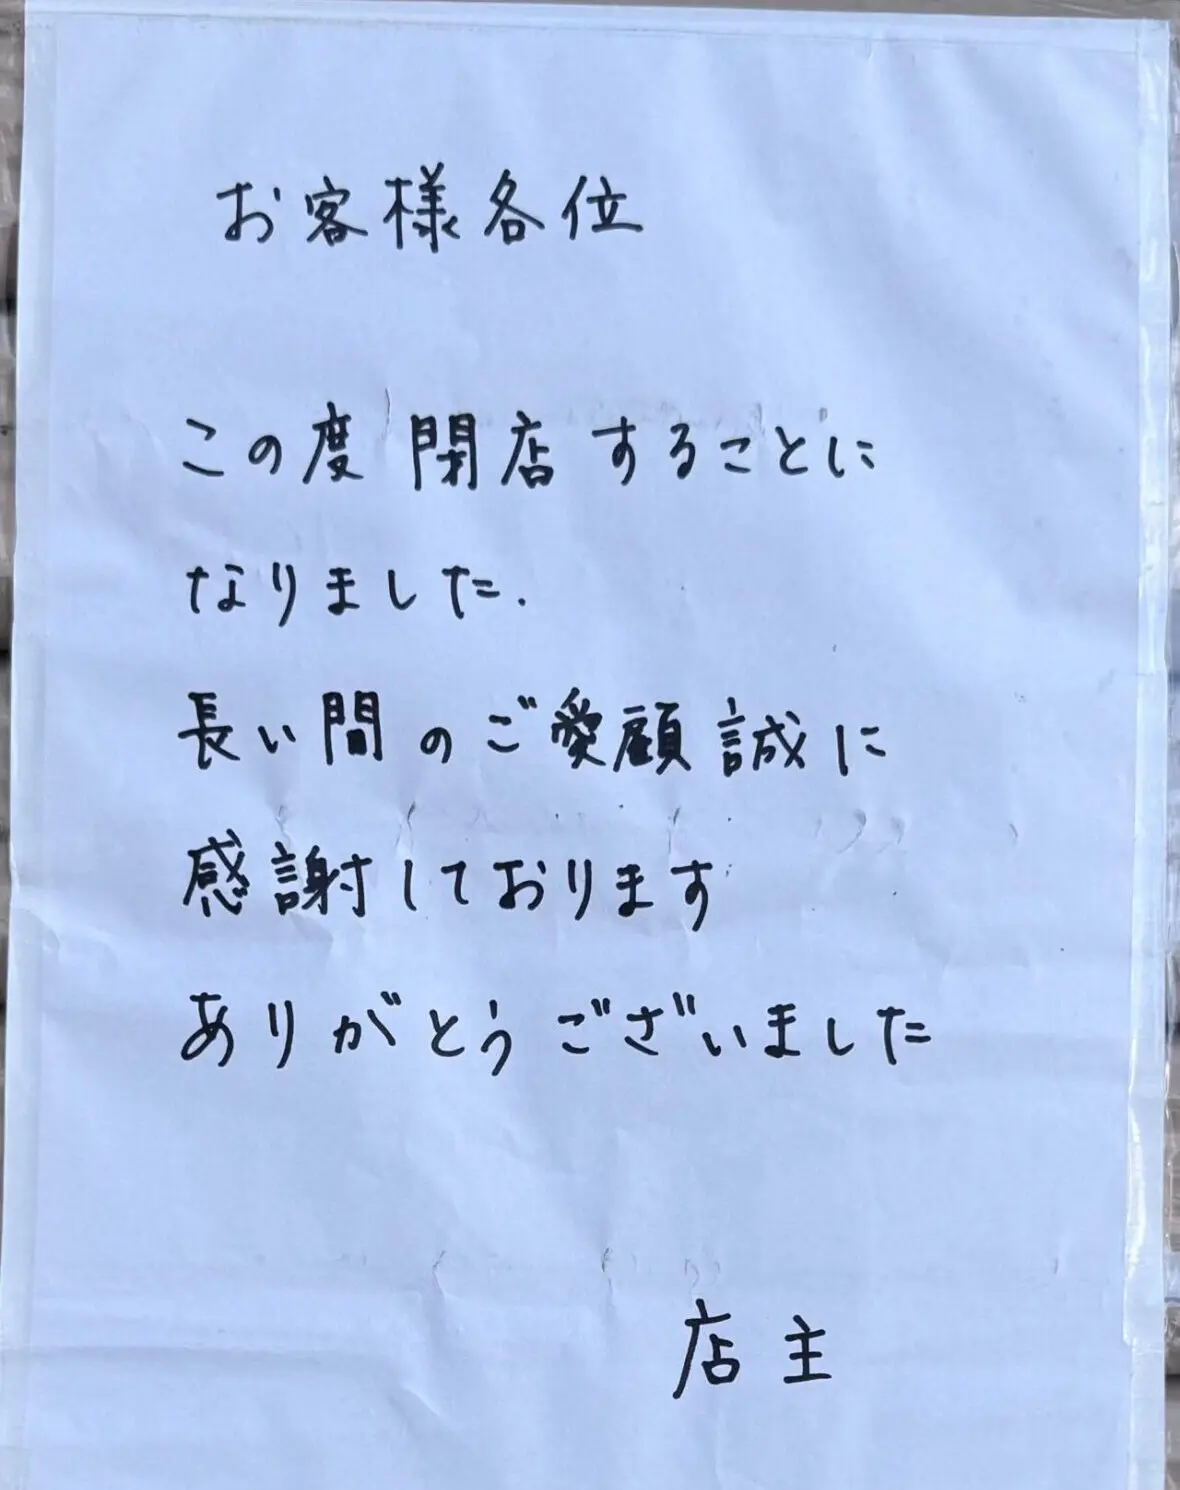 お客様各位
この度 閉店することに
なりました.
長い間のご愛顧誠に
感謝しております
ありがとうございました
店主